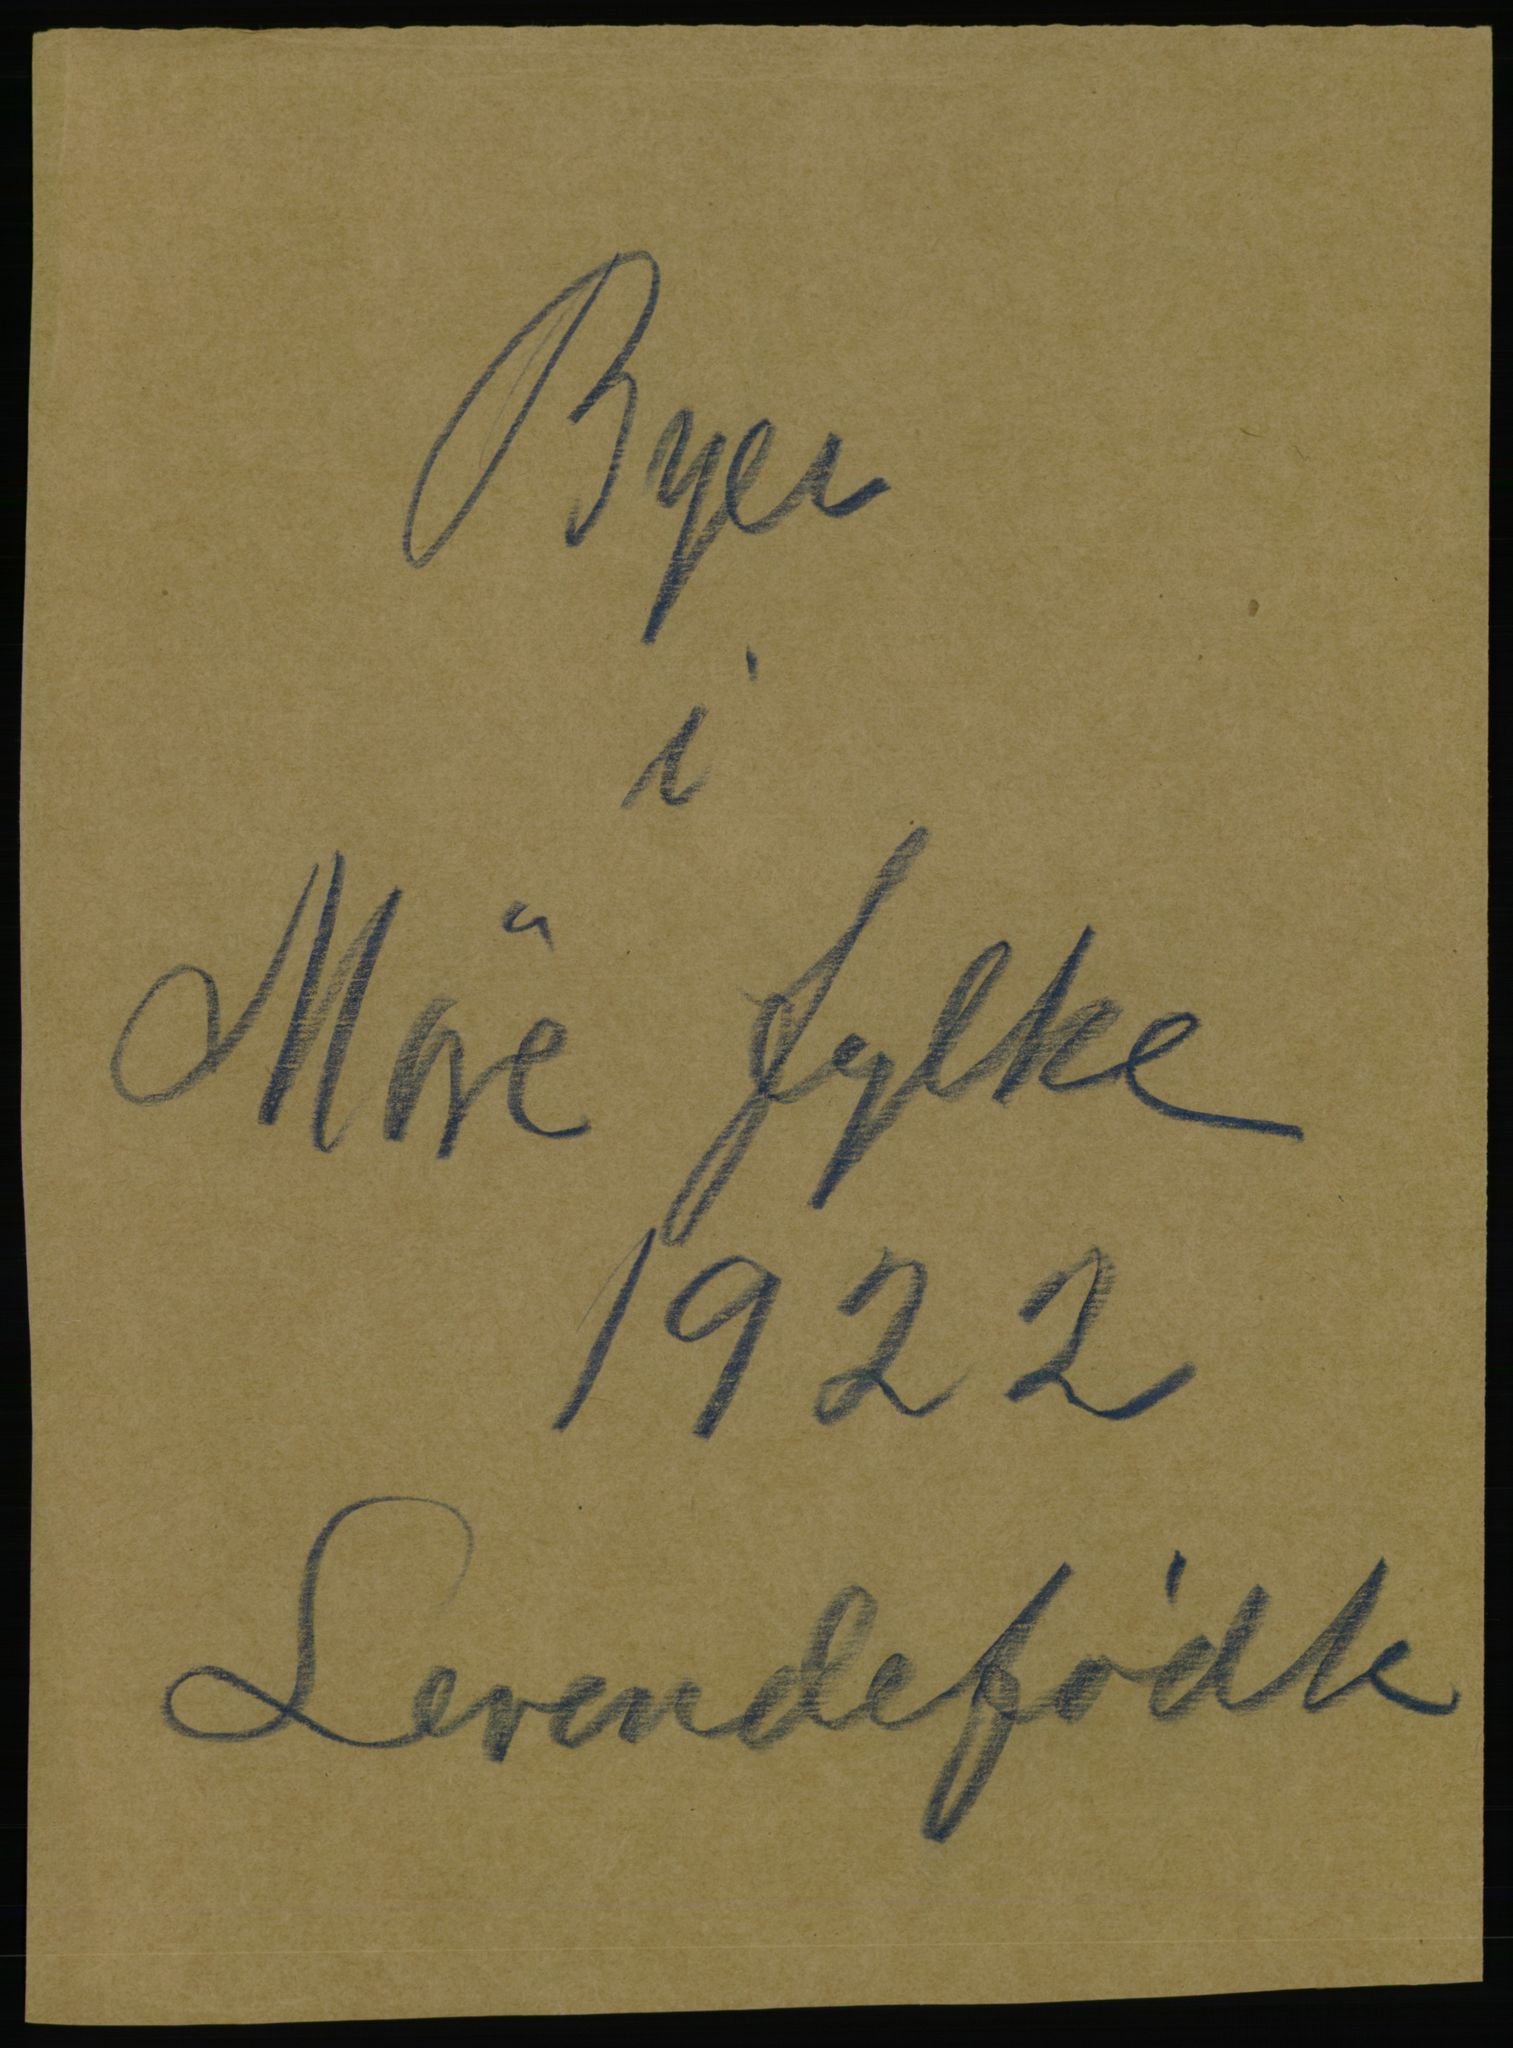 Byer
i
Möre fylke
1922
Levendefødte